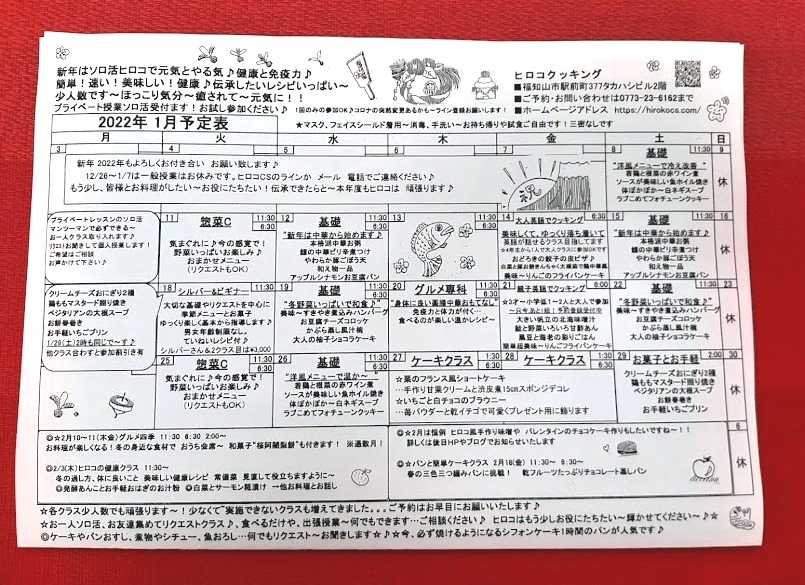 新年はソロ活ヒロコで元気とやる気♪健康と免疫力♪
簡単!速い!美味しい!健康♪伝承したいレシピいっぱい~
少人数です~ほっこり気分~癒されて~元気に!!
プライベート授業ソロ活受付ます!お試し参加ください♪
!回のみの参加OK♪コロナの突然変更あるかも~ライン登録お願いします!
ヒロコクッキング
■福知山市駅前町377タカハシビル2階
■ご予約・お問い合わせは0773-23-6162まで
■ホームページアドレス https://hirokocs.com/
2022年 1月予定表
★マスク、フェイスシールド着用~消毒、手洗い~お持ち帰りや試食ご自由です!三密なしです
3 月 4 火 5 水 6 木 7 金 8 土 9 日
新年 2022年もよろしくお付き合い お願い致します♪
12/26~1/7は一般授業はお休みです。ヒロコCSのラインか メール 電話でご連絡ください♪
もう少し。皆様とお料理がしたい~お役にたちたい!伝承できたらと~本年度もヒロコは 頑張ります♪
基礎 11:30
"洋風メニューで冷え改善"
香鶏と根菜の赤ワイン煮
ソースが美味しい魚ホイル焼き
体ぽかぽか~白ネギスープ
ラブこめてフォチューンクッキー
休
プライベートレッスンのソロ活
マンツーマンで必ずできる~
お一人クラス取り入れます♪
ご希望はご相談
お声かけて下さい♪
11 惣菜C 11:30 6:30
気まぐれに♪今の感覚で!
野菜いっぱいお楽しみ♪
おまかせメニュー
(リクエストもOK)
12 基礎 11:30 6:30
"新年は中華から始めます♪"
本格派中華お粥
鱧の中華ピリ辛煮つけ
やわらか豚ごぼう天
和え物一品
アップルシナモンお豆腐パン
13
14 大人英語でクッキング 6:30
美味しくて、ゆっくり落ち着いて
英語が話せるクラス目指してます
おどろきの餃子の皮ピザ♪
美味~りんごのフライパンケーキ
15 基礎 11:30 6:30
"新年は中華から始めます♪"
本格派中華お粥
鱧の中華ピリ辛煮つけ
やわらか豚ごぼう天
和え物一品
アップルシナモンお豆腐パン
16 休
クリームチーズおにぎり2種
鶏ももマスタード照り焼き
ベジタリアンの大根スープ
お餅春巻き
お手軽いちごプリン
1/29(土)2時も同じで~す♪
他クラス合わすと参加割引き有
18 シルバー&ビギナー 11:30
大切な基礎やリクエストを中心に
季節メニューとお菓子
ゆっくり楽しく基本から指導します♪
男女年齢制限なし。
ていねいレシピ付♪
シルバーさん&2クラス目は¥3,000
19 基礎 11:30 6:30
"冬野菜いっぱいで和食♪"
美味~すきやき煮込みハンバーグ
お豆腐チーズコロッケ
かぶら蒸し風汁椀
大人の柚子ショコラケーキ
20 グルメ専科 11:30 6:30
"身体に良い薬膳中華おもてなし"
免疫力と体力が付く…
食べるのが楽しい温かレシピ~
21 親子英語でクッキング 11:30 6:30
★3才~小学低1~2人と大人で参加
大きい帆立の北海味噌汁
鮭と野菜いろいろ甘酢あん
黒豆と海老の彩りごはん
簡単超美味~りんごフライパンケーキ
22 基礎 11:30
"冬野菜いっぱいで和食♪"
美味~すきやき煮込みハンバーグ
お豆腐チーズコロッケ
かぶら蒸し風汁椀
大人の柚子ショコラケーキ
23 休
25 惣菜C 11:30 6:30
気まぐれに♪今の感覚で!
野菜いっぱいお楽しみ♪
おまかせメニュー
(リクエストもOK)
26 基礎 11:30 6:30
"洋風メニューで温か~"
香鶏と根菜の赤ワイン煮
ソースが美味しい魚ホイル焼き
体ぽかぽか~白ネギスープ
ラブこめてフォチューンクッキー
27 ケーキクラス 11:30 28 ケーキクラス 11:30
☆菜のフランス風ショートケーキ
…手作り甘栗クリームと渋皮煮15cmスポンジデコレ
☆いちごと白チョコのブラウニー
…苺パウダーと乾イチゴで可愛くプレゼント用に飾ります
29 お菓子とお手軽 2:00
クリームチーズおにぎり2種
鶏ももマスタード照り焼き
ベジタリアンの大根スープ
お餅春巻き
お手軽いちごプリン
30 休
◎☆2月10~11(木金)グルメ四季 11:30 6:30 2:00~
お料理が楽しくなる!冬の身近な食材で おうち会席~ 和菓子"桜阿闍梨餅"も付きます! ※通数月!
◎2/3(木)ヒロコの健康クラス 11:30~
冬の過し方、体に良いこと 美味しい健康レシピ 常備菜 見直して役立ちますように~
◎発酵あんことお手軽おはぎのお汁粉 ◎白菜とサーモン糀漬け →他お料理とお話し
◎☆2月は恒例 ヒロコ風手作り味噌や バレンタインのチョコケーキ作りもしたいですね~!!
詳しくは後日HPやブログでお知らせいたします!
◎☆パンと簡単ケーキクラス 2月18(金) 11:30~ 6:30
春の三色三つ編みパンに挑戦! 乾フルーツたっぷりチョコレート蒸しパン
6 休
☆各クラス少人数でも頑張ります~!少なくて実施できないクラスも増えてきました…ご予約はお早目にお願いいたします♪
☆お一人ソロ活、お友達集めてリクエストクラス♪、食べるだけや、出張授業~何でもできます…ご相談ください♪ ヒロコはもう少しお役にたちたい~輝かせてください~♪☆
◎ケーキやパンおすし、煮物やシチュー、魚おろし…何でもリクエスト~お聞きします☆♪☆今、必ず焼けるようになるシフォンケーキ1時間のパンが人気です♪